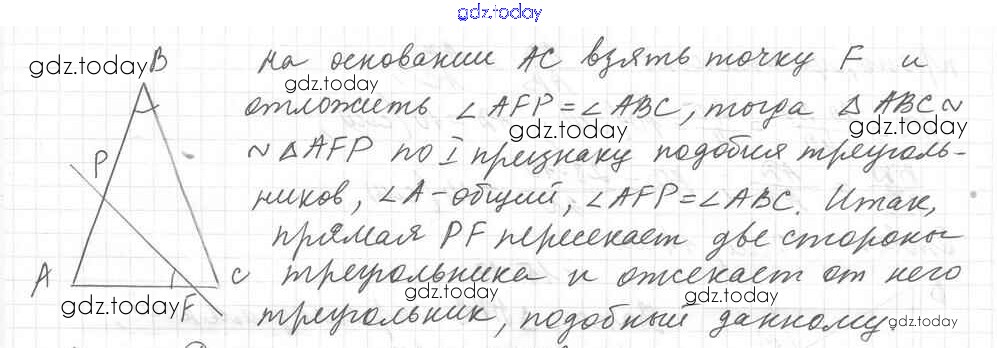 gdz.today
на основании AC взять точку F и
gdz.today
отложить ∠AFP = ∠ABC, тогда △ABC ~
gdz.today
~ △AFP по I признаку подобия треуголь-
gdz.today
ников, ∠A - общий, ∠AFP = ∠ABC. Итак,
gdz.today
прямая PF пересекает две стороны
треугольника и отсекает от него
gdz.today
gdz.today
треугольник, подобный данному.
gdz.today
gdz.today
B
P
A
C
F